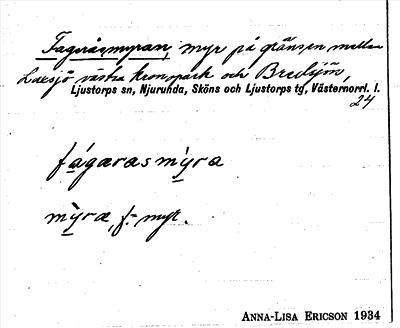 Fageråsmyran, myr på gränsen mellan
Laxsjö västra kronopark och Bredsjön,
Ljustorps sn, Njurunda, Sköns och Ljustorps tg, Västernorrl. l.
24
fágarasmỳra
mỳra, f. myr.
ANNA-LISA ERICSON 1934